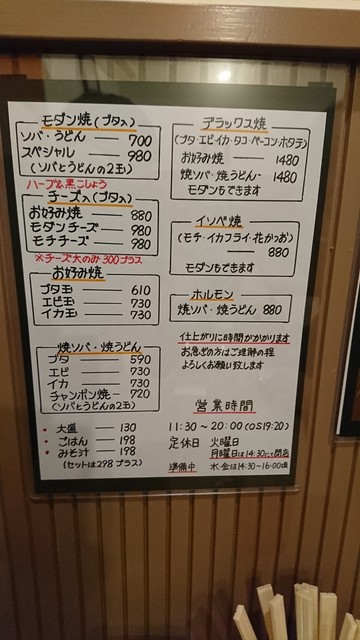 モダン焼(ブタ入)
ソバ・うどん 700
スペシャル 980
(ソバとうどんの2玉)
ハーブ&黒こしょう
チーズ入(ブタ入)
お好み焼 880
モダンチーズ 980
モチチーズ 980
※チーズ大のみ300プラス
お好み焼
ブタ玉 610
エビ玉 730
イカ玉 730
焼ソバ・焼うどん
ブタ 590
エビ 730
イカ 730
チャンポン焼 720
(ソバとうどんの2玉)
・大盛 130
・ごはん 198
・みそ汁 198
(セットは298プラス)
デラックス焼
(ブタ・エビ・イカ・タコ・ベーコン・ホタテ)
お好み焼 1480
焼ソバ・焼うどん 1480
モダンもできます
イソベ焼
(モチ・イカフライ・花かつお)
880
モダンもできます
ホルモン
焼ソバ・焼うどん 880
仕上がりに時間がかかります
お急ぎの方はご理解の程
よろしくお願い致します
営業時間
11:30~20:00(OS19:20)
定休日 火曜日
月曜日は14:30にて閉店
準備中 水・金は14:30~16:00頃